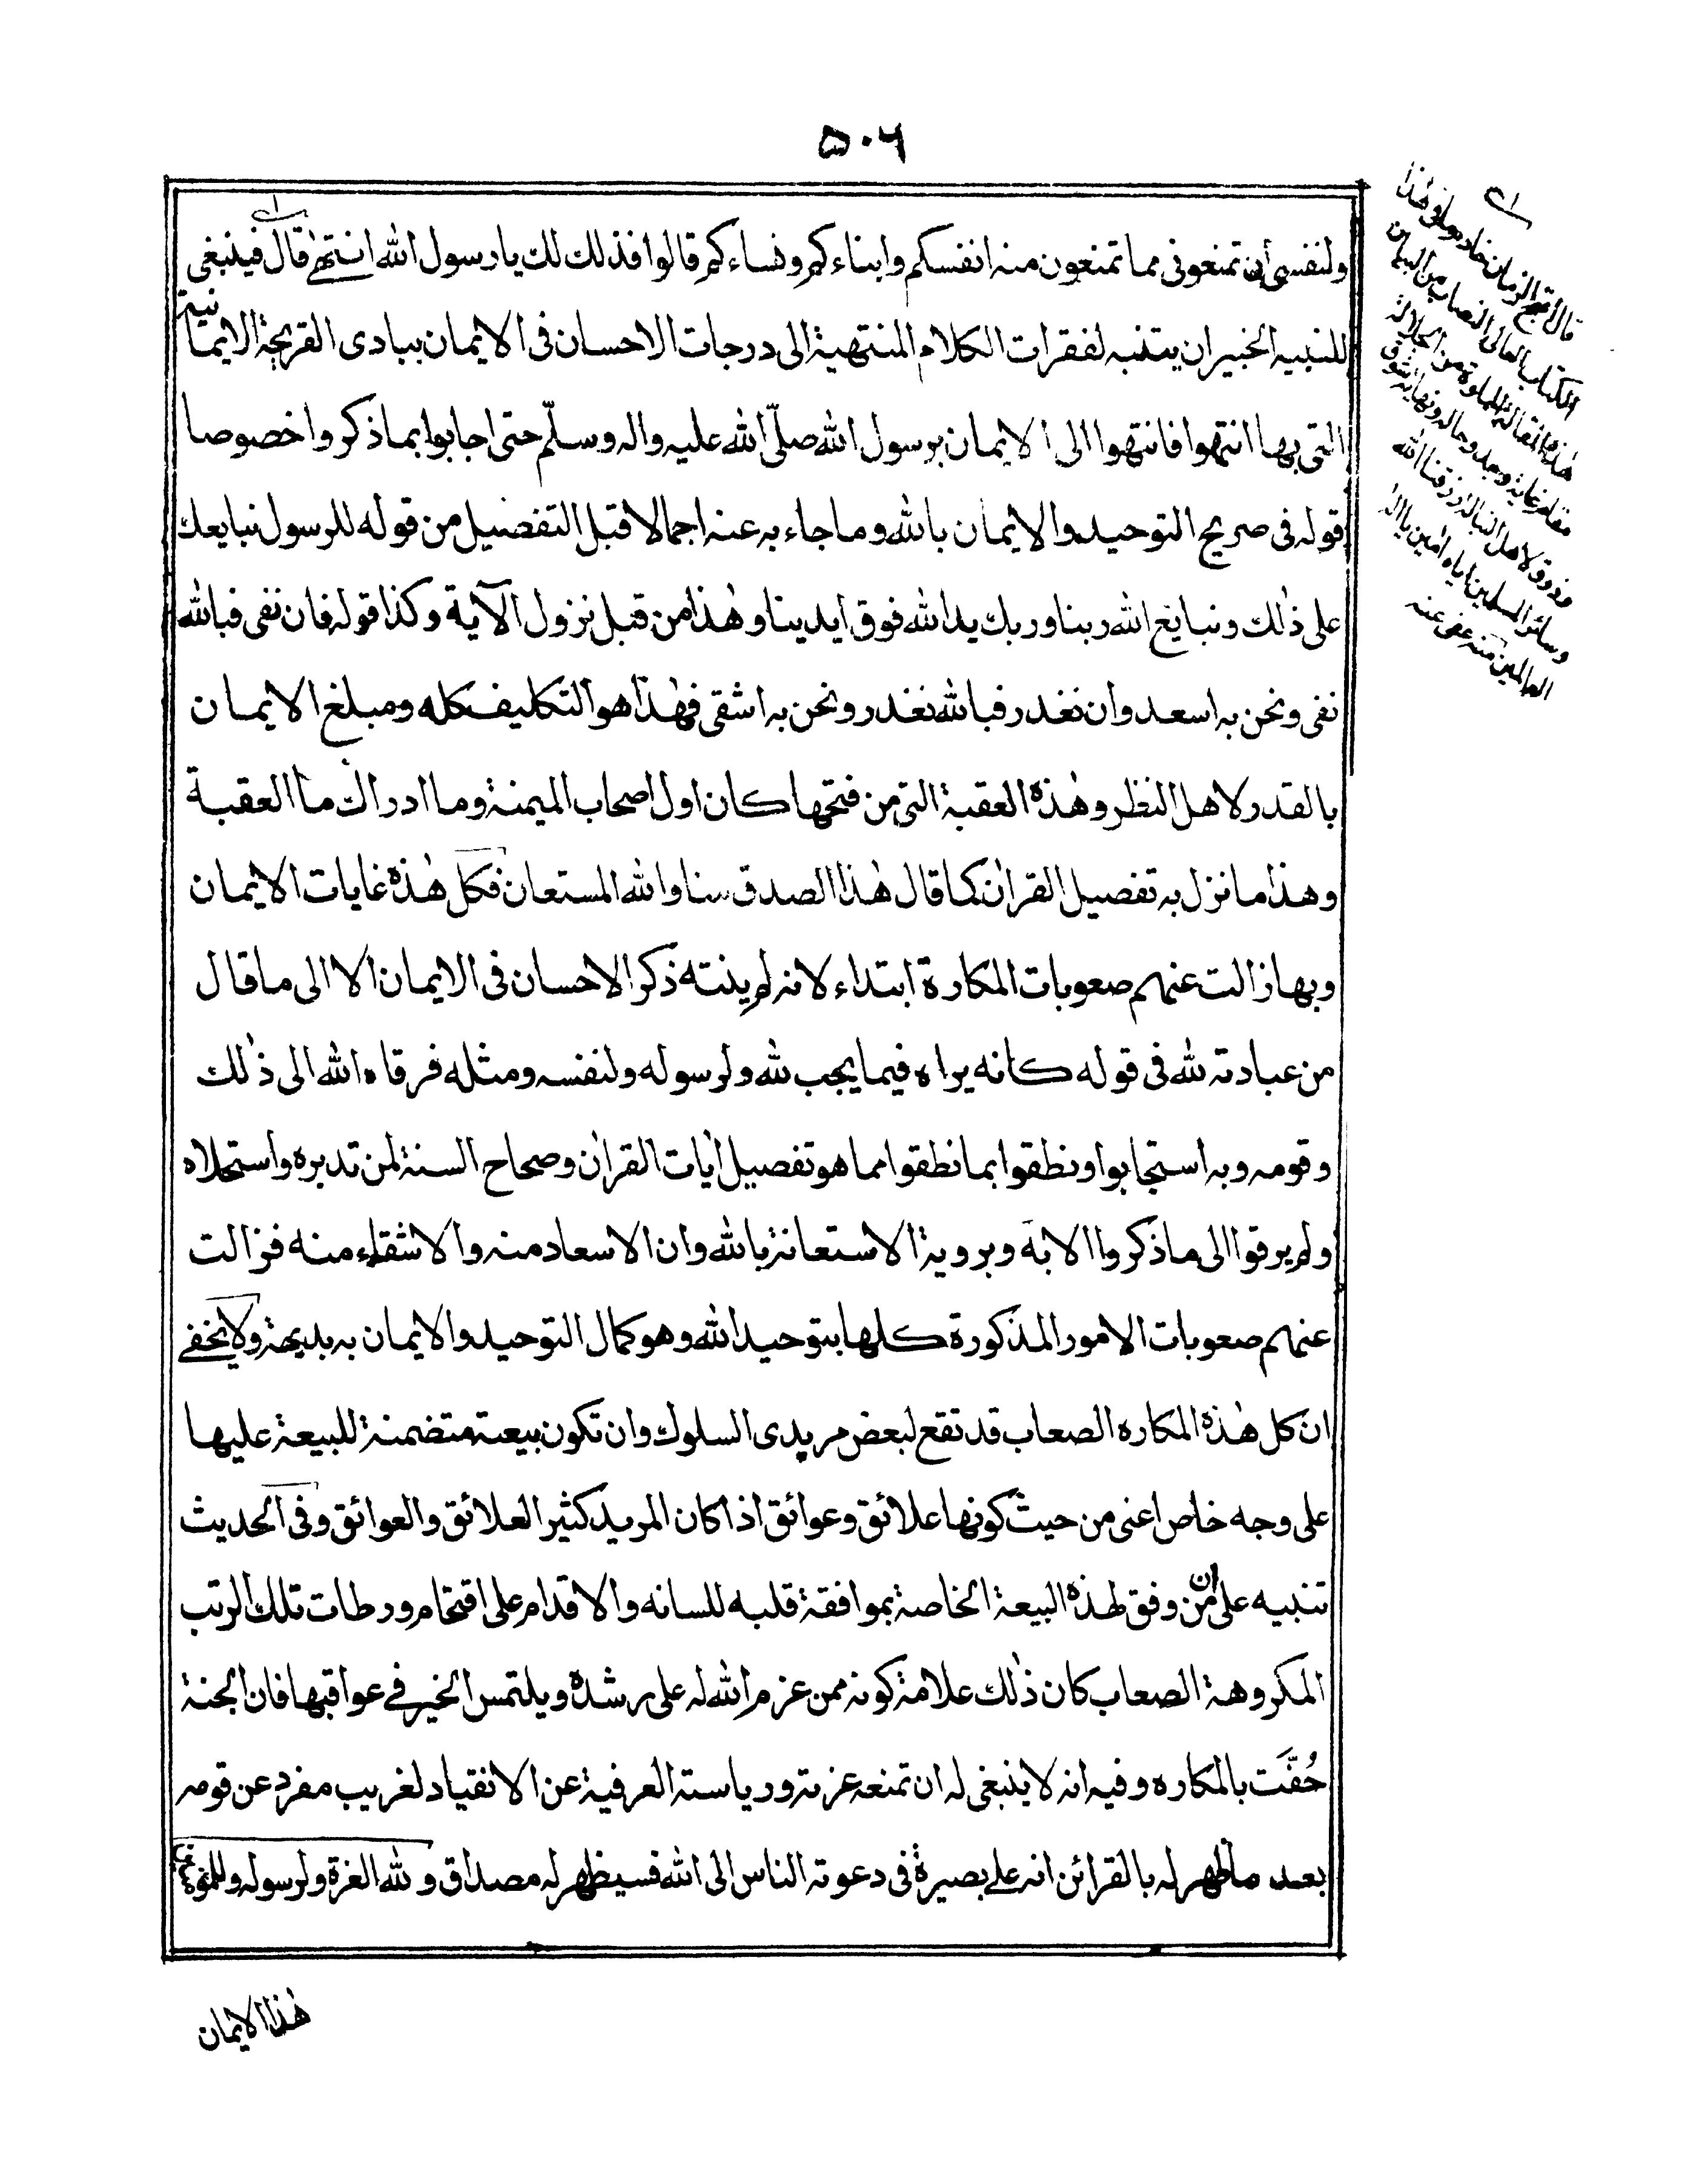 ٥٠٦
ولنفسي أن تمنعوني مما تمنعون منه انفسكم وابناءكم ونساءكم قالوا فذلك لك يا رسول الله انتهى قال فينبغي
للنبيه الخبير ان يتنبه لفقرات الكلام المنتهية الى درجات الاحسان في الايمان ببادى القريحة الايمانية
التي بها انتهوا فانتهوا الى الايمان برسول الله صلّى الله عليه واله وسلّم حتى اجابوا بما ذكروا خصوصا
قوله في صريح التوحيد والايمان بالله وما جاء به عنه اجمالا قبل التفصيل من قوله للرسول نبايعك
على ذٰلك ونبايع الله ربنا وربك يد الله فوق ايدينا وهٰذا من قبل نزول الآية وكذا قوله فان نفى فبالله
نفى ونحن به اسعد وان نغدر فبالله نغدر ونحن به اشقى فهٰذا هو التكليف كله ومبلغ الايمان
بالقدر لاهل النظر وهٰذه العقبة التي من فتحها كان اول اصحاب الميمنة وما ادراك ما العقبة
وهذا ما نزل به تفصيل القراٰن كما قال هٰذا الصدق سنا والله المستعان فكل هٰذه غايات الايمان
وبها زالت عنهم صعوبات المكارة ابتداء لانه لم ينته ذكر الاحسان في الايمان الا الى ما قال
من عبادته لله في قوله كانه يراه فيما يجب لله ولرسوله ولنفسه ومثله فرقاه الله الى ذٰلك
وقومه وبه استجابوا ونطقوا بما نطقوا مما هو تفصيل اٰيات القراٰن وصحاح السنة لمن تدبره واستحلاه
ولم يرقوا الى ما ذكروا الا به وبروية الاستعانة بالله وان الاسعاد منه والاشقاء منه فزالت
عنهم صعوبات الامور المذكورة كلها بتوحيد الله وهو كمال التوحيد والايمان به بديهة ولا يخفى
ان كل هٰذه المكاره الصعاب قد تقع لبعض مريدى السلوك وان تكون بيعته متضمنة للبيعة عليها
على وجه خاص اعنى من حيث كونها علائق وعوائق اذا كان المريد كثير العلائق والعوائق وفي الحديث
تنبيه على ان من وفق لهذه البيعة الخاصة بموافقة قلبه للسانه والاقدام على اقتحام ورطات تلك الرتب
المكروهة الصعاب كان ذٰلك علامة كونه ممن عزم الله له على رشده ويلتمس الخير في عواقبها فان الجنة
حُفَّت بالمكاره وفيه انه لا ينبغي له ان تمنعه عزته ورياسته العرفية عن الانقياد لغريب مفرد عن قومه
بعد ما ظهر له بالقرائن انه على بصيرة في دعوته الناس الى الله فسيظهر له مصداق ولله العزة ولرسوله وللمؤمنين
هٰذا الايمان
الكتاب العالى النصاب من البيان
وسائر المسلمين اياه اٰمين يا اله
العالمين منه عفى عنه